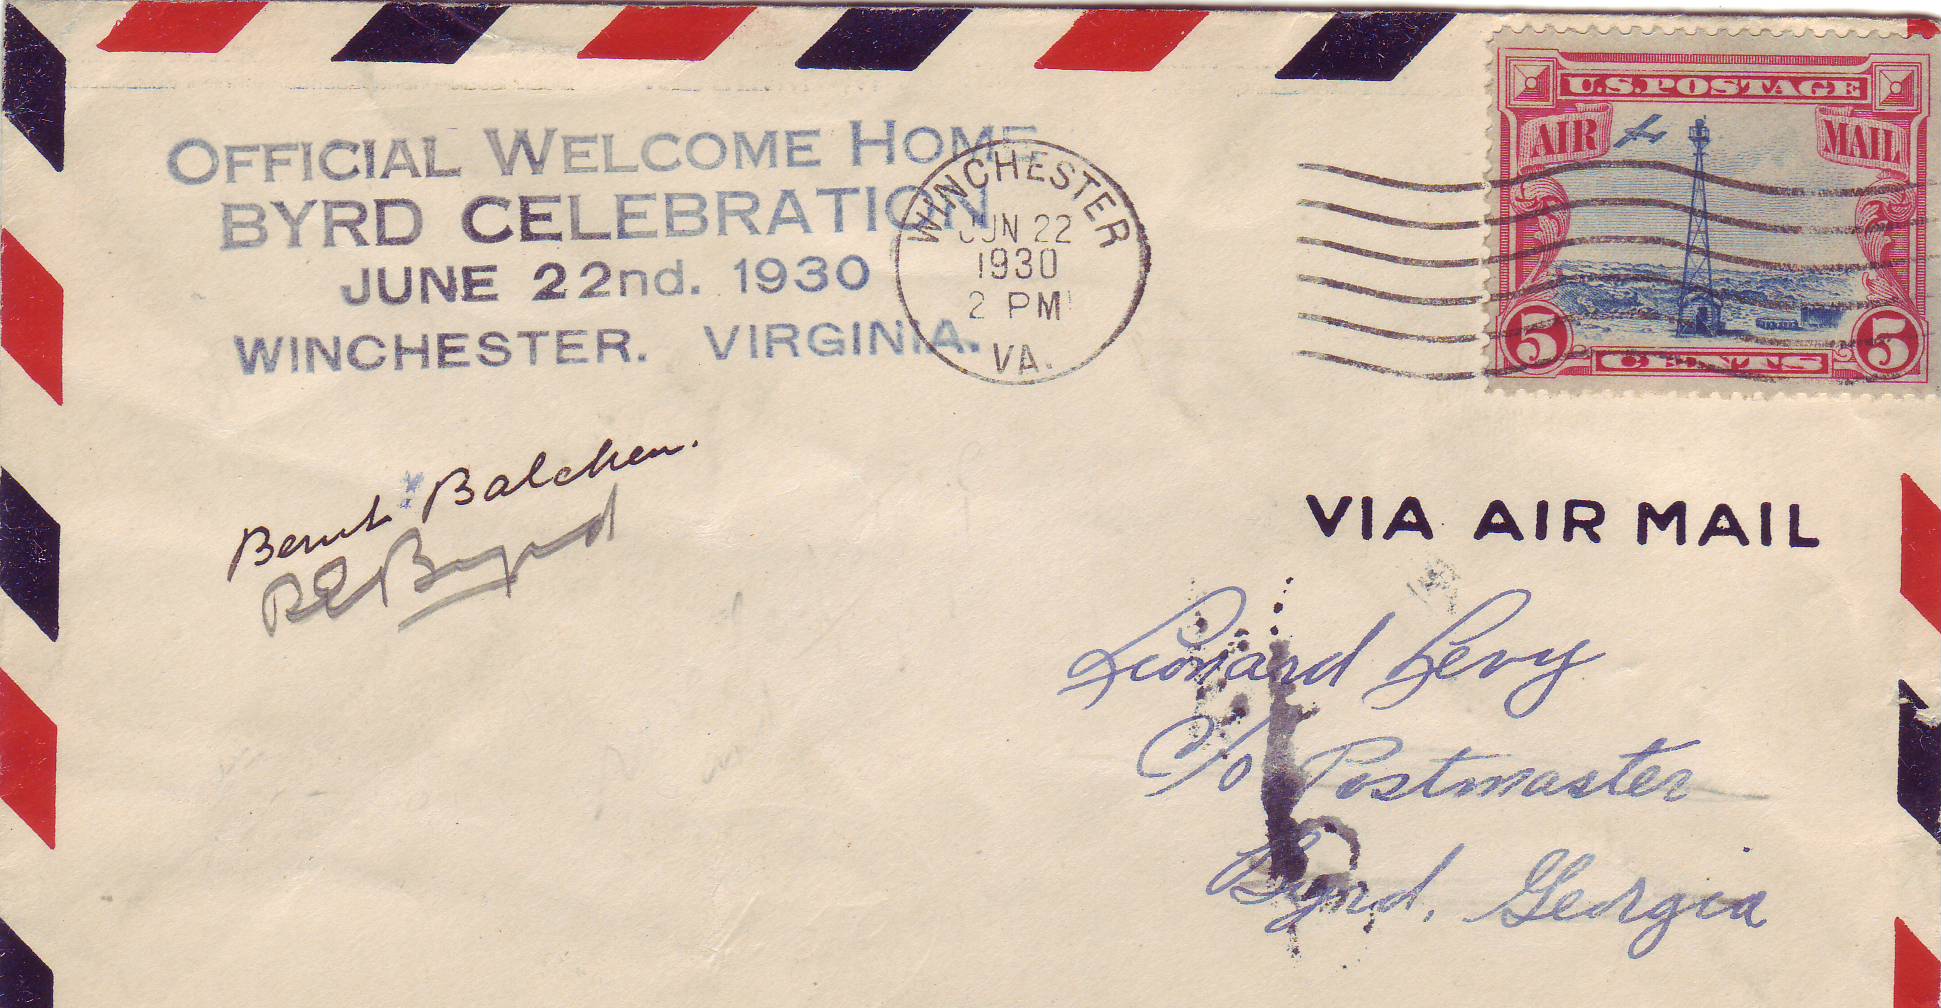 OFFICIAL WELCOME HOME
BYRD CELEBRATION
JUNE 22nd. 1930
WINCHESTER. VIRGINIA.
WINCHESTER
JUN 22
1930
2 PM
VA.
U.S. POSTAGE
AIR MAIL
5 CENTS 5
Bernt Balchen.
RE Byrd
VIA AIR MAIL
Leonard Levy
c/o Postmaster
Byrd, Georgia